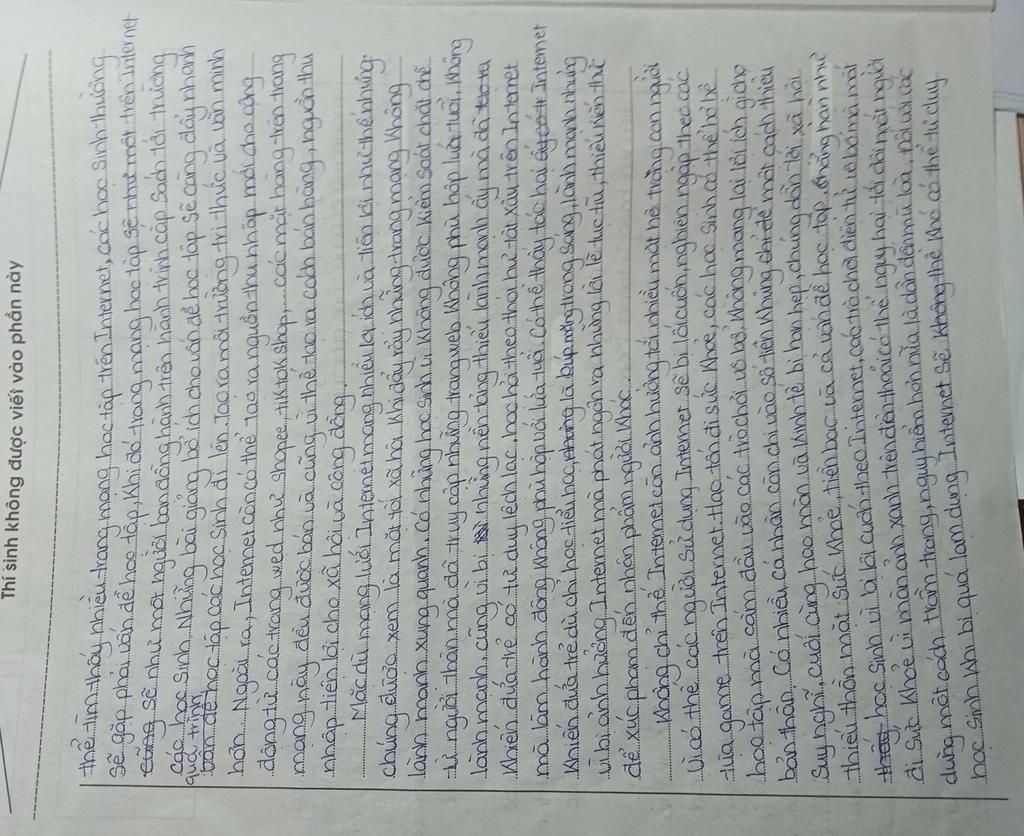 Thí sinh không được viết vào phần này
thể tìm thấy nhiều trang mạng học tập trên Internet, các học sinh thường
sẽ gặp phải vấn đề học tập, khi đó trang mạng học tập sẽ như một trên Internet
cũng sẽ như một người bạn đồng hành trên hành trình cắp sách tới trường
các học sinh. Những bài giảng bổ ích cho vấn đề học tập sẽ càng đẩy nhanh
quá trình
bạn để học tập các học sinh đi lên, tạo ra môi trường tri thức và văn minh
hơn. Ngoài ra, Internet còn có thể tạo ra nguồn thu nhập mới cho cộng
đồng từ các trang wed như shopee, tiktokshop,... các mặt hàng trên trang
mạng này đều được bán và cũng vì thế tạo ra cách bán hàng, nguồn thu
nhập tiện lợi cho xã hội và cộng đồng.
Mặc dù mạng lưới Internet mang nhiều lợi ích và tiện lợi như thế nhưng
chúng được xem là mặt tối xã hội khi đầy rẫy những trang mạng không
lành mạnh xung quanh. Có những học sinh vì không được kiểm soát chặt chẽ
từ người thân mà đã truy cập những trang web không phù hợp lứa tuổi, không
lành mạnh, cũng vì bị những nền tảng thiếu lành mạnh ấy mà đã tạo ra
khiến đứa trẻ có tư duy lệch lạc, học hỏi theo thói hư tật xấu trên Internet
mà làm hành động không phù hợp với lứa tuổi. Có thể thấy tác hại Internet
khiến đứa trẻ dù chỉ học tiểu học, là búp măng trong sáng, lành mạnh nhưng
vì bị ảnh hưởng Internet mà phát ngôn ra những lời lẽ tục tĩu, thiếu kiến thức
để xúc phạm đến nhân phẩm người khác.
Không chỉ thế Internet còn ảnh hưởng tới nhiều mặt hè trong con người
Vì có thể các người sử dụng Internet sẽ bị lôi cuốn, nghiện ngập theo các
tựa game trên Internet. Hao tán đi sức khỏe, các học sinh có thể hờ hè
học tập mà cắm đầu vào các trò chơi vô bổ, không mang lại lợi ích gì cho
bản thân. Có nhiều cá nhân còn chi vào số tiền khủng để một cách thiếu
suy nghĩ, cuối cùng hao mòn và kinh tế bị hạn hẹp, chúng dẫn tới xã hội
thiếu thốn mặt sức khỏe, tiền bạc và cả vấn đề học tập chẳng hạn như
học sinh vì bị lôi cuốn theo Internet, các trò chơi điện tử vô bổ mà mất
đi sức khoẻ vì màn ảnh xanh trên điện thoại có thể nguy hại tới đôi mắt người
dùng một cách trầm trọng, nguy hiểm hơn nữa là dẫn đến mù loà, nối với các
học sinh khi bị quá lạm dụng Internet sẽ không thể khó có thể tư duy